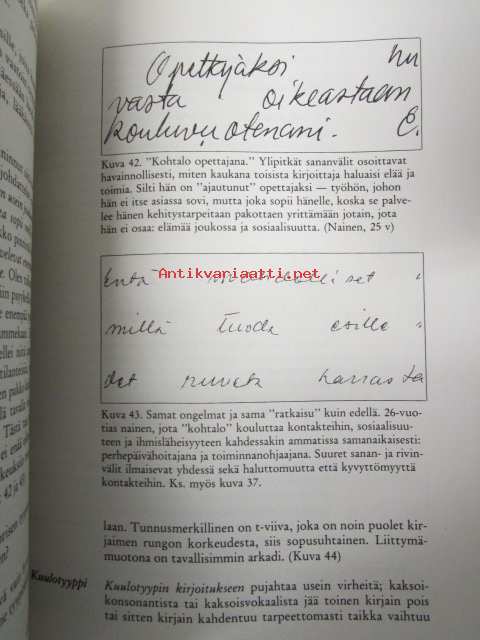 Opettajaksi hu
vasta oikeastaan
kouluvuotenani. E.
Kuva 42. "Kohtalo opettajana." Ylipitkät sananvälit osoittavat
havainnollisesti, miten kaukana toisista kirjoittaja haluaisi elää ja
toimia. Silti hän on "ajautunut" opettajaksi — työhön, johon
hän ei itse asiassa sovi, mutta joka sopii hänelle, koska se palve-
lee hänen kehitystarpeitaan pakottaen yrittämään jotain, jota
hän ei osaa: elämää joukossa ja sosiaalisuutta. (Nainen, 25 v)
Antikvariaatti.net
millä tuoda esille
det ruveta harrasta
Kuva 43. Samat ongelmat ja sama "ratkaisu" kuin edellä. 26-vuo-
tias nainen, jota "kohtalo" kouluttaa kontakteihin, sosiaalisuu-
teen ja ihmisläheisyyteen kahdessakin ammatissa samanaikaisesti:
perhepäivähoitajana ja toiminnanohjaajana. Suuret sanan- ja rivin-
välit ilmaisevat yhdessä sekä haluttomuutta että kyvyttömyyttä
kontakteihin. Ks. myös kuva 37.
laan. Tunnusmerkillinen on t-viiva, joka on noin puolet kir-
jaimen rungon korkeudesta, siis sopusuhtainen. Liittymä-
muotona on tavallisimmin arkadi. (Kuva 44)
Kuulotyyppi
Kuulotyypin kirjoitukseen pujahtaa usein virheitä; kaksoi-
konsonantista tai kaksoisvokaalista jää toinen kirjain pois
tai sitten kirjain kahdentuu tarpeettomasti taikka vaihtuu